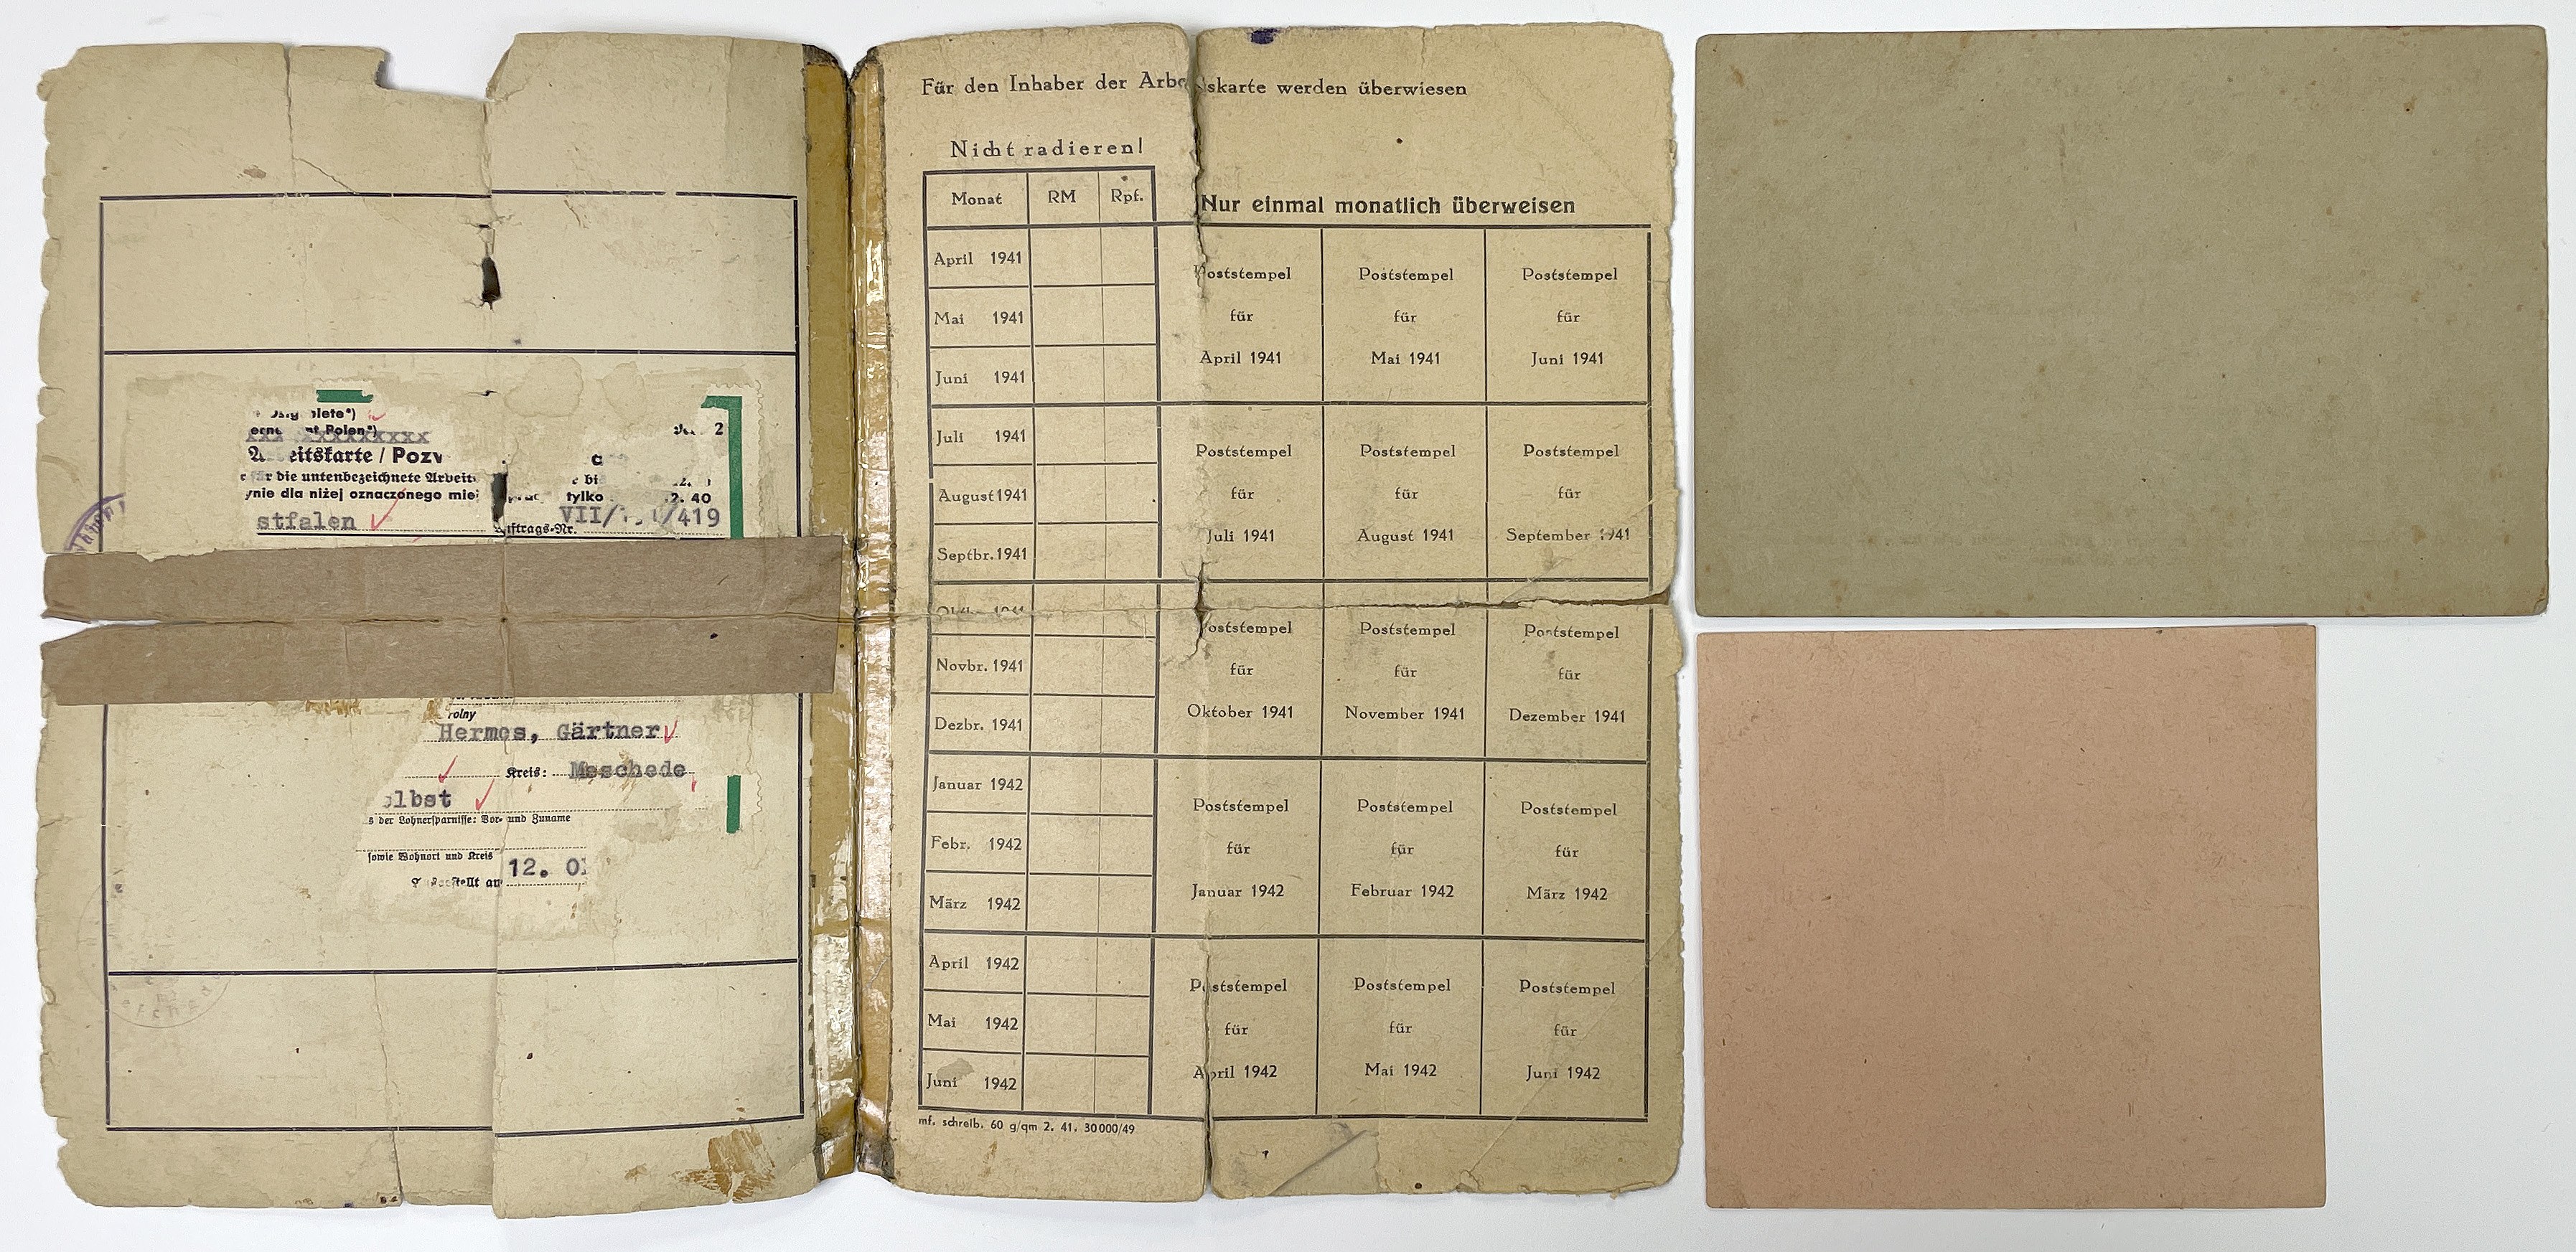 Arbeitskarte / Pozw
für die untenbezeichnete Arbeits
ynie dla niżej oznaczonego miej
tylko 2. 40
stfalen
Auftrags-Nr. VII/ /419
rolny
Hermes, Gärtner
Kreis: Meschede
elbst
s der Lohnersparnisse: Vor- und Zuname
sowie Wohnort und Kreis
Ausgestellt am 12. O
Für den Inhaber der Arbeitskarte werden überwiesen
Nicht radieren!
Monat RM Rpf.
April 1941
Mai 1941
Juni 1941
Juli 1941
August 1941
Septbr. 1941
Novbr. 1941
Dezbr. 1941
Januar 1942
Febr. 1942
März 1942
April 1942
Mai 1942
Juni 1942
Nur einmal monatlich überweisen
Poststempel Poststempel Poststempel
für für für
April 1941 Mai 1941 Juni 1941
Poststempel Poststempel Poststempel
für für für
Juli 1941 August 1941 September 1941
Poststempel Poststempel Poststempel
für für für
Oktober 1941 November 1941 Dezember 1941
Poststempel Poststempel Poststempel
für für für
Januar 1942 Februar 1942 März 1942
Poststempel Poststempel Poststempel
für für für
April 1942 Mai 1942 Juni 1942
mf. schreib. 60 g/qm 2. 41. 30000/49